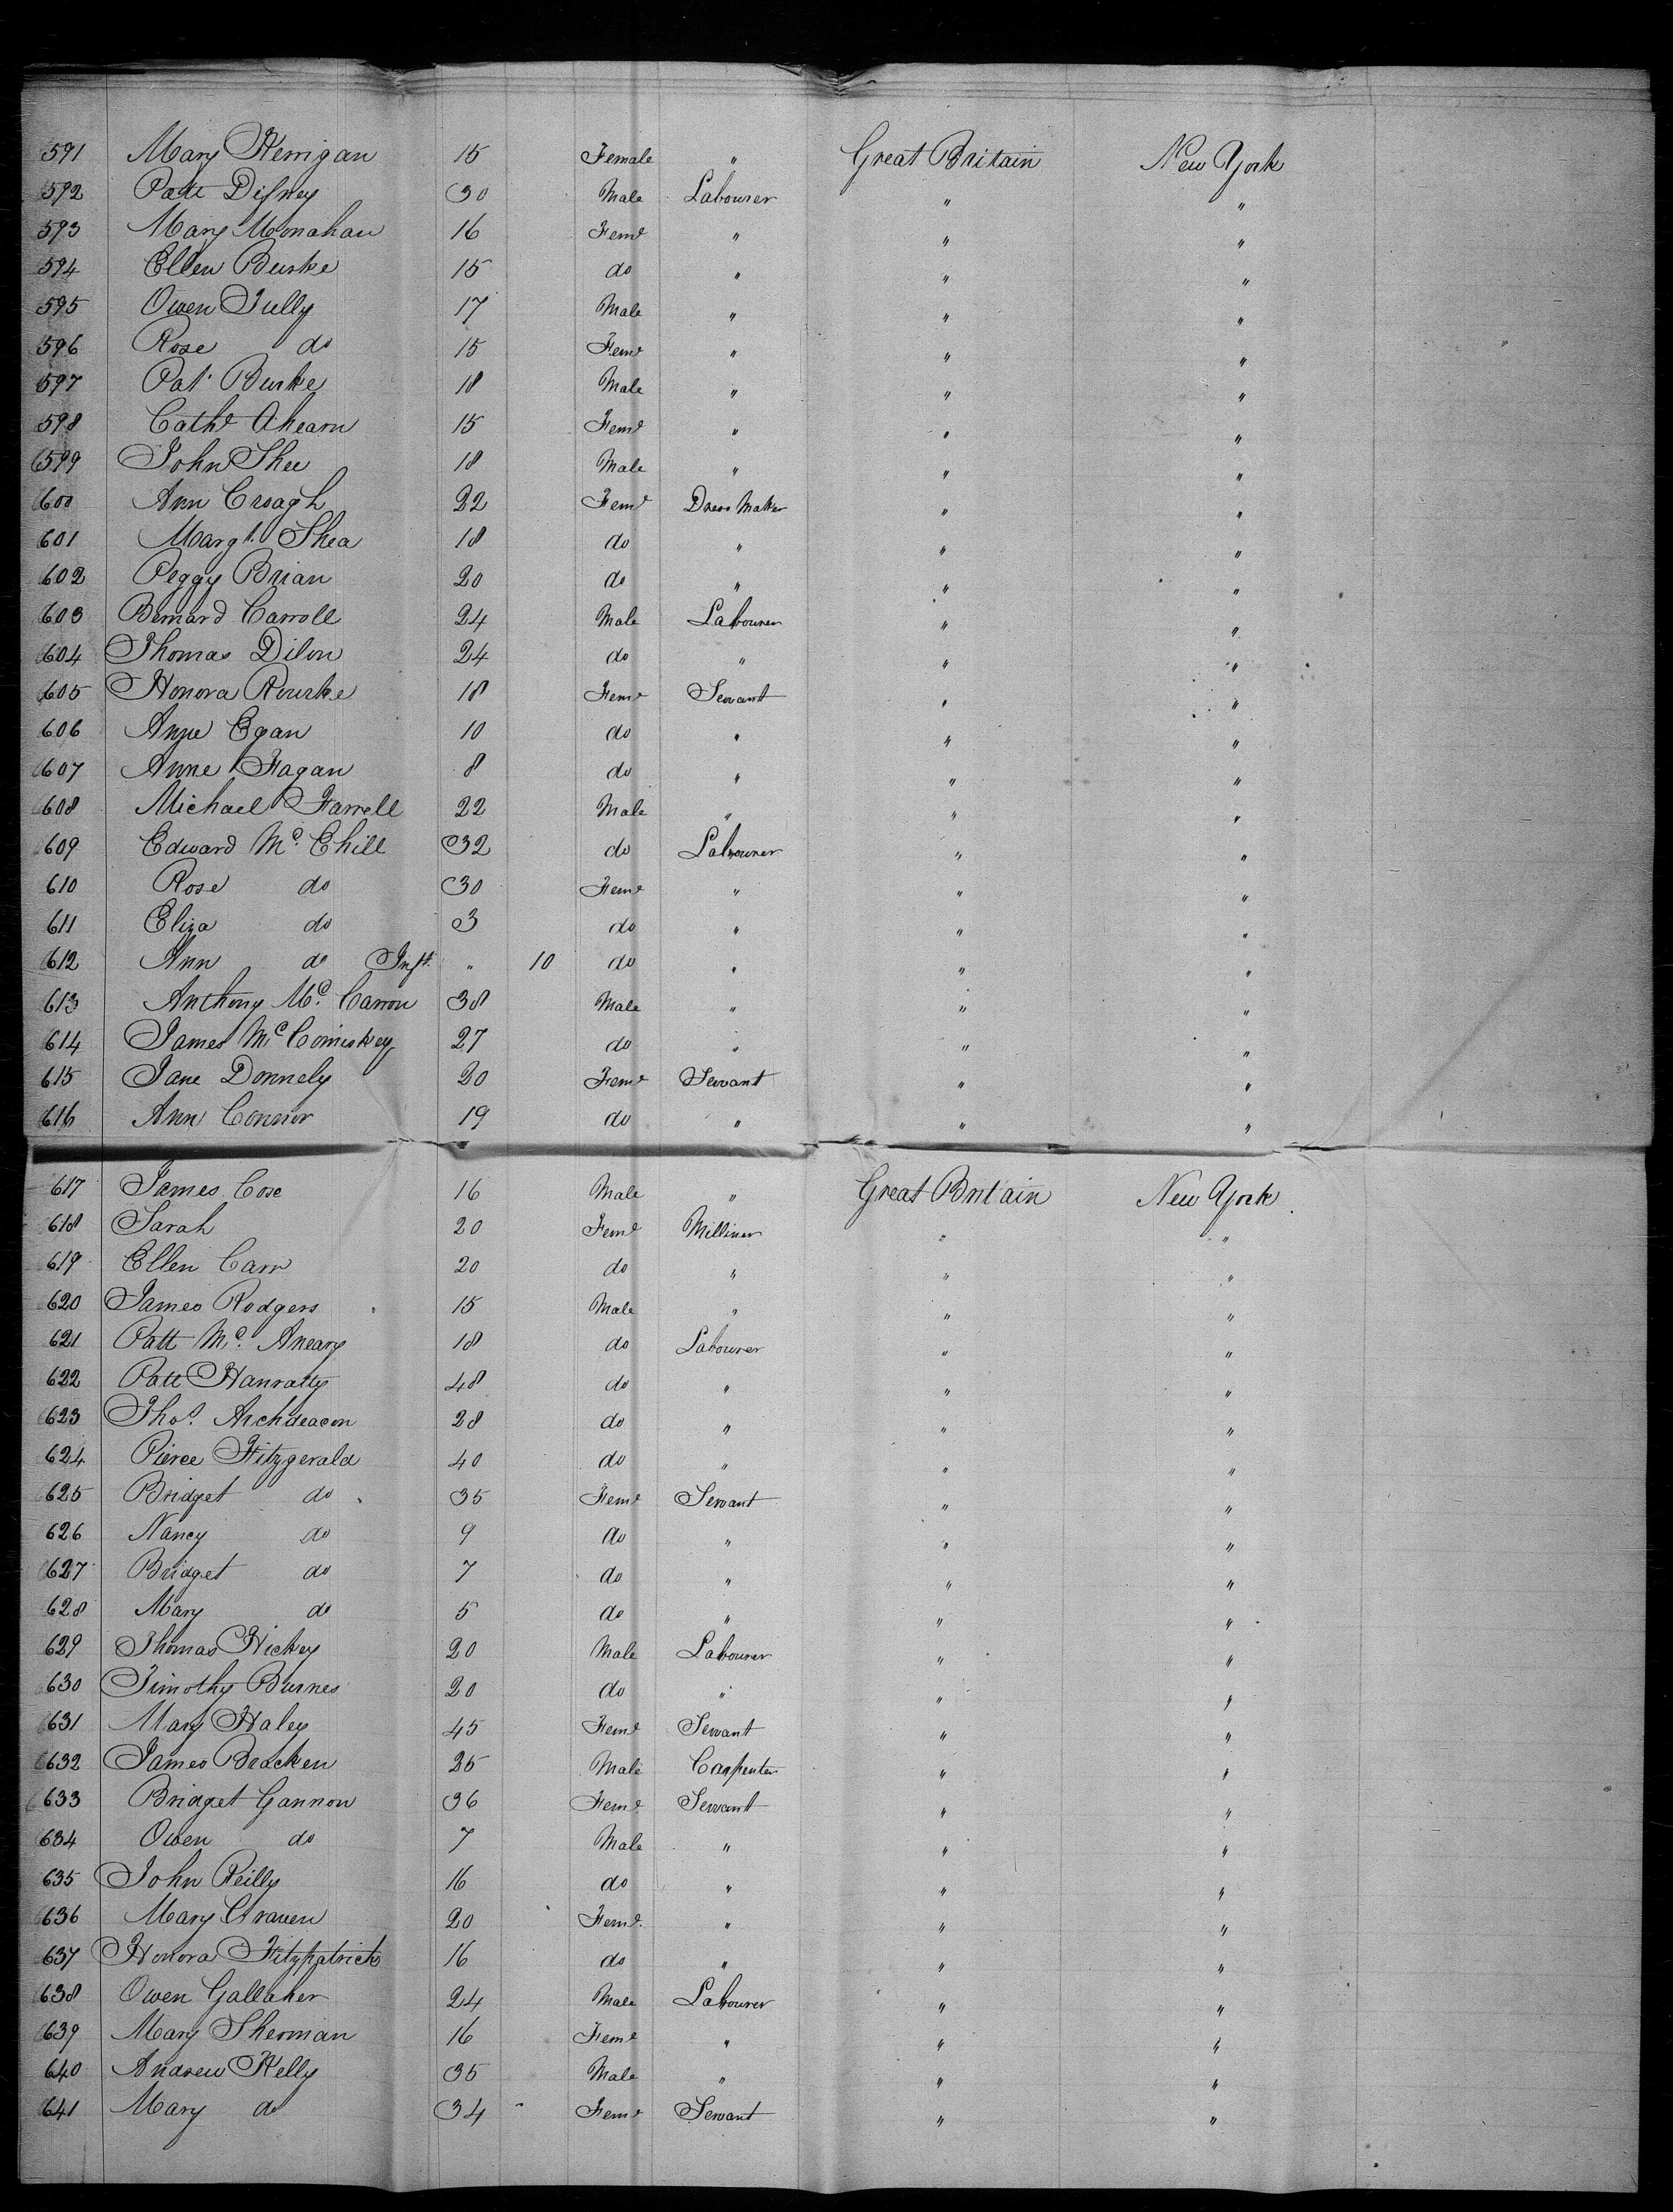 591 Mary Kerrigan 15 Female " Great Britain New York
592 Patt Disney 30 Male Labourer " "
593 Mary Monahan 16 Feme " " "
594 Ellen Burke 15 do " " "
595 Owen Tully 17 Male " " "
596 Rose do 15 Feme " " "
597 Pat. Burke 18 Male " " "
598 Cathe Ahearn 15 Feme " " "
599 John Shee 18 Male " " "
600 Ann Croagh 22 Feme Dress Maker " "
601 Margt. Shea 18 do " " "
602 Peggy Brian 20 do " " "
603 Bernard Carroll 24 Male Labourer " "
604 Thomas Dilon 24 do " " "
605 Honora Rourke 18 Feme Servant " "
606 Anne Egan 10 do " " "
607 Anne Fagan 8 do " " "
608 Michael Farrell 22 Male " " "
609 Edward Mc. Ehill 32 do Labourer " "
610 Rose do 30 Feme " " "
611 Eliza do 3 do " " "
612 Ann do Inft. " 10 do " " "
613 Anthony Mc. Carron 38 Male " " "
614 James Mc Comiskey 27 do " " "
615 Jane Donnely 20 Feme Servant " "
616 Ann Connor 19 do " " "
617 James Cose 16 Male " Great Britain New York
618 Sarah 20 Feme Milliner " "
619 Ellen Carr 20 do " " "
620 James Rodgers 15 Male " " "
621 Patt Mc. Aneary 18 do Labourer " "
622 Patt Hanratty 48 do " " "
623 Thos. Archdeacon 28 do " " "
624 Pierce Fitzgerald 40 do " " "
625 Bridget do 35 Feme Servant " "
626 Nancy do 9 do " " "
627 Bridget do 7 do " " "
628 Mary do 5 do " " "
629 Thomas Hickey 20 Male Labourer " "
630 Timothy Burnes 20 do " " "
631 Mary Haley 45 Feme Servant " "
632 James Bracken 25 Male Carpenter " "
633 Bridget Gannon 36 Feme. Servant " "
634 Owen do 7 Male " " "
635 John Reilly 16 do " " "
636 Mary Craven 20 Feme. " " "
637 Honora Fitzpatrick 16 do " " "
638 Owen Gallaher 24 Male Labourer " "
639 Mary Sherman 16 Feme " " "
640 Andrew Kelly 35 Male " " "
641 Mary do 34 Feme Servant " "